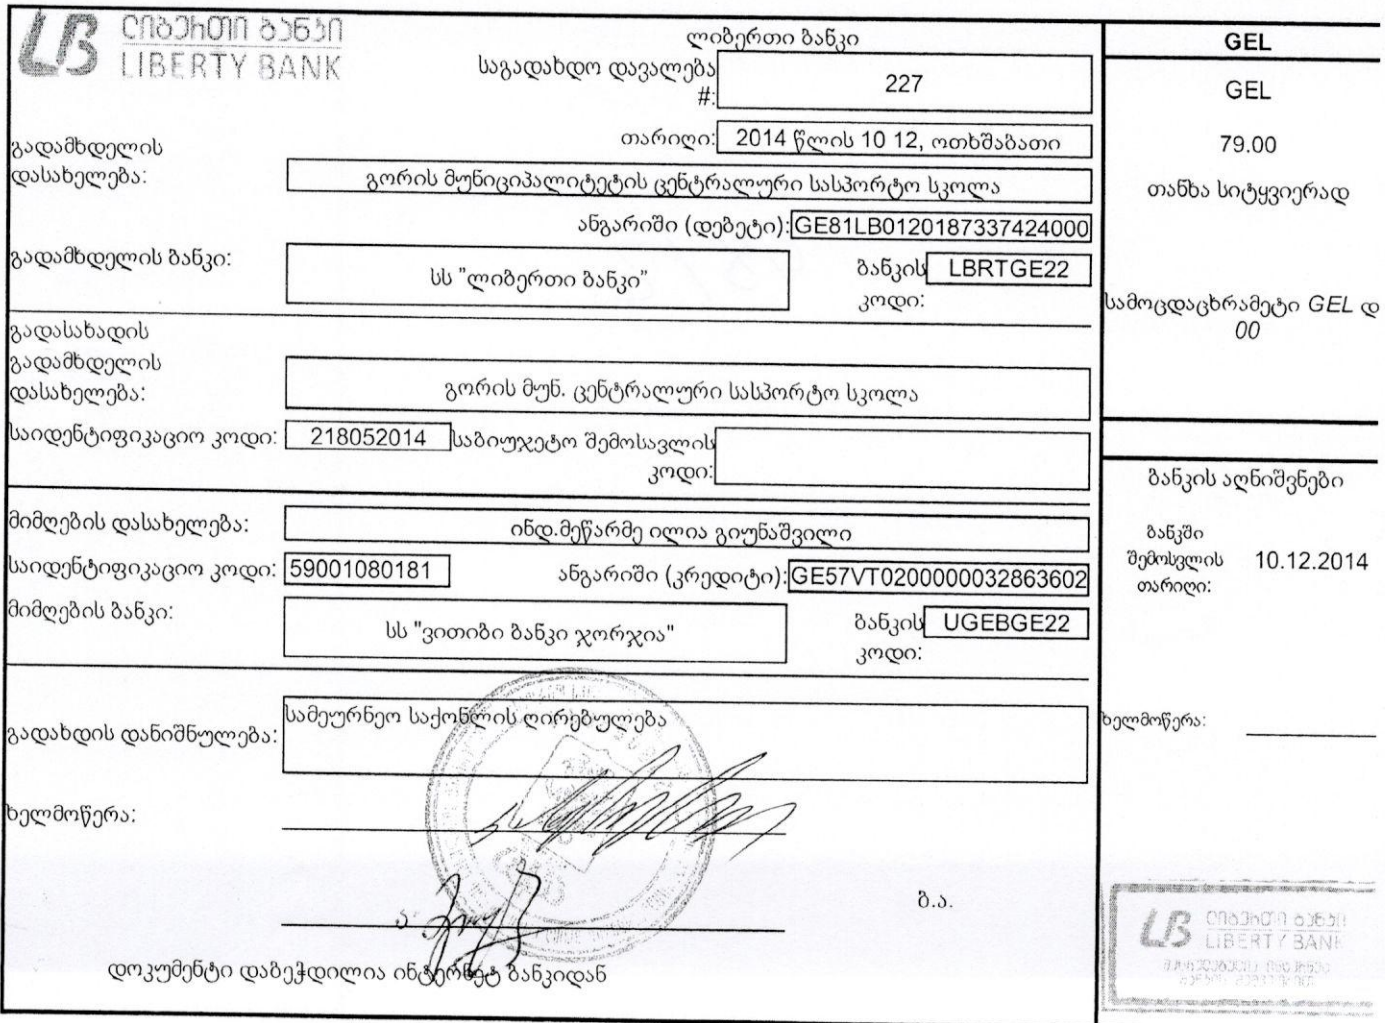 ლიბერთი ბანკი
LIBERTY BANK
ლიბერთი ბანკი
საგადახდო დავალება #: 227
თარიღი: 2014 წლის 10 12, ოთხშაბათი
გადამხდელის დასახელება: გორის მუნიციპალიტეტის ცენტრალური სასპორტო სკოლა
ანგარიში (დებეტი): GE81LB0120187337424000
გადამხდელის ბანკი: სს "ლიბერთი ბანკი" ბანკის კოდი: LBRTGE22
გადასახადის
გადამხდელის
დასახელება: გორის მუნ. ცენტრალური სასპორტო სკოლა
საიდენტიფიკაციო კოდი: 218052014 საბიუჯეტო შემოსავლის კოდი:
მიმღების დასახელება: ინდ.მეწარმე ილია გიუნაშვილი
საიდენტიფიკაციო კოდი: 59001080181 ანგარიში (კრედიტი): GE57VT0200000032863602
მიმღების ბანკი: სს "ვითიბი ბანკი ჯორჯია" ბანკის კოდი: UGEBGE22
გადახდის დანიშნულება: სამეურნეო საქონლის ღირებულება
ხელმოწერა:
ბ.ა.
დოკუმენტი დაბეჭდილია ინტერნეტ ბანკიდან
GEL
GEL
79.00
თანხა სიტყვიერად
სამოცდაცხრამეტი GEL დ
00
ბანკის აღნიშვნები
ბანკში
შემოსვლის
თარიღი: 10.12.2014
ხელმოწერა:
ლიბერთი ბანკი
LIBERTY BANK